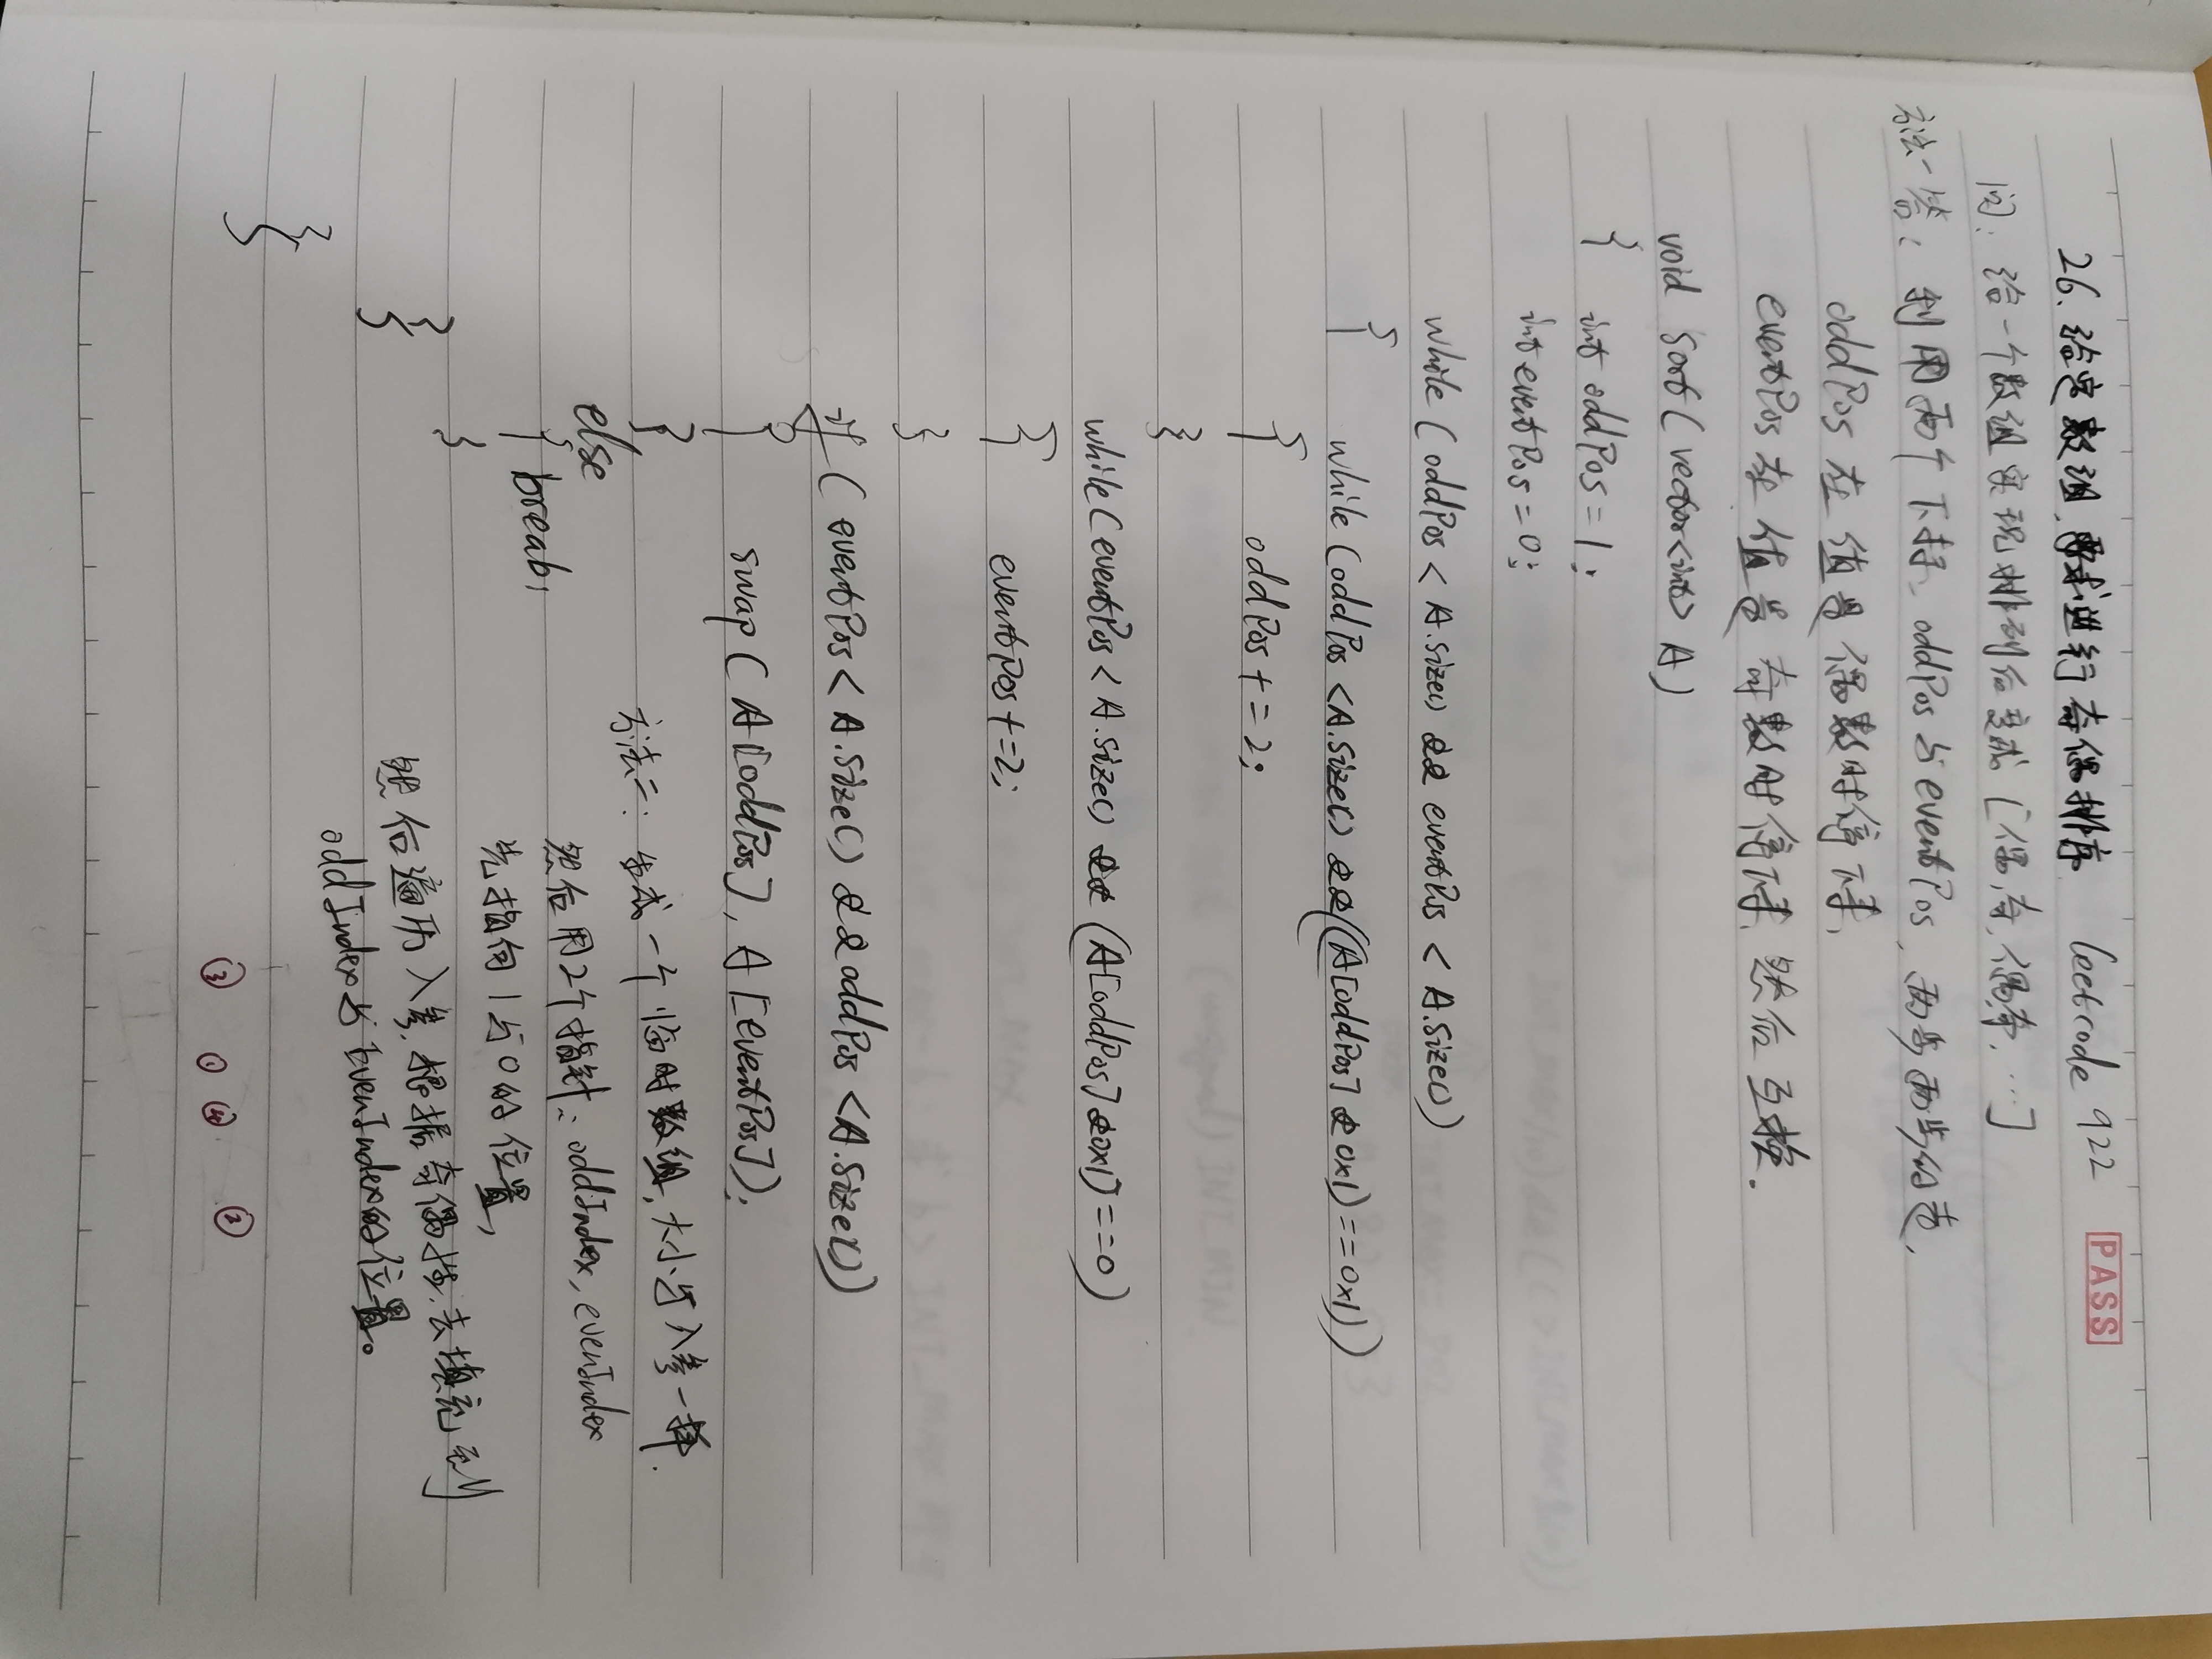 26. 给定数组,要求进行奇偶排序. leetcode 922 PASS
问: 给一个数组实现排列后变成 [偶,奇,偶,奇,…]
方法一答: 利用两个下标 oddPos 与 eventPos, 两步两步的走,
oddPos 在值是偶数时停下来,
eventPos 在值是奇数时停下来, 然后互换.
void sort( vector<int> A)
{ int oddPos = 1;
int eventPos = 0;
while ( oddPos < A.size() && eventPos < A.size())
{ while (oddPos < A.size() && ((A[oddPos] & 0x1) == 0x1))
{ oddPos += 2;
}
while (eventPos < A.size() && (A[oddPos] & 0x1] == 0)
{ eventPos += 2;
}
if ( eventPos < A.size() && oddPos < A.size())
{ swap ( A[oddPos], A[eventPos]);
}
else
{ break;
}
}
}
方法二: 生成一个临时数组, 大小与入参一样.
然后用2个指针: oddIndex, evenIndex
先指向 1 与 0 的位置,
然后遍历入参, 根据奇偶性, 去填充到
oddIndex 与 EvenIndex的位置。
③ ① ④ ②